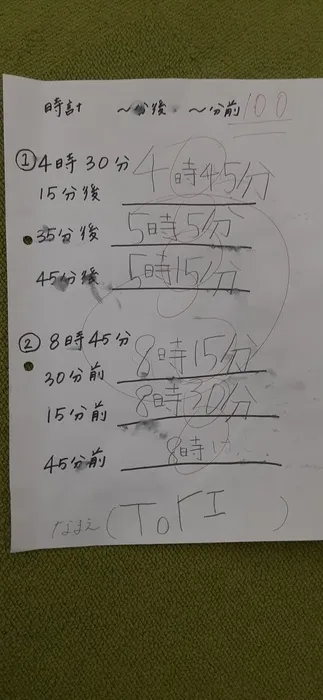 時計 ~分後・~分前 100
①4時30分
15分後 4時45分
35分後 5時5分
45分後 5時15分
②8時45分
30分前 8時15分
15分前 8時30分
45分前 8時
なまえ(TorI)